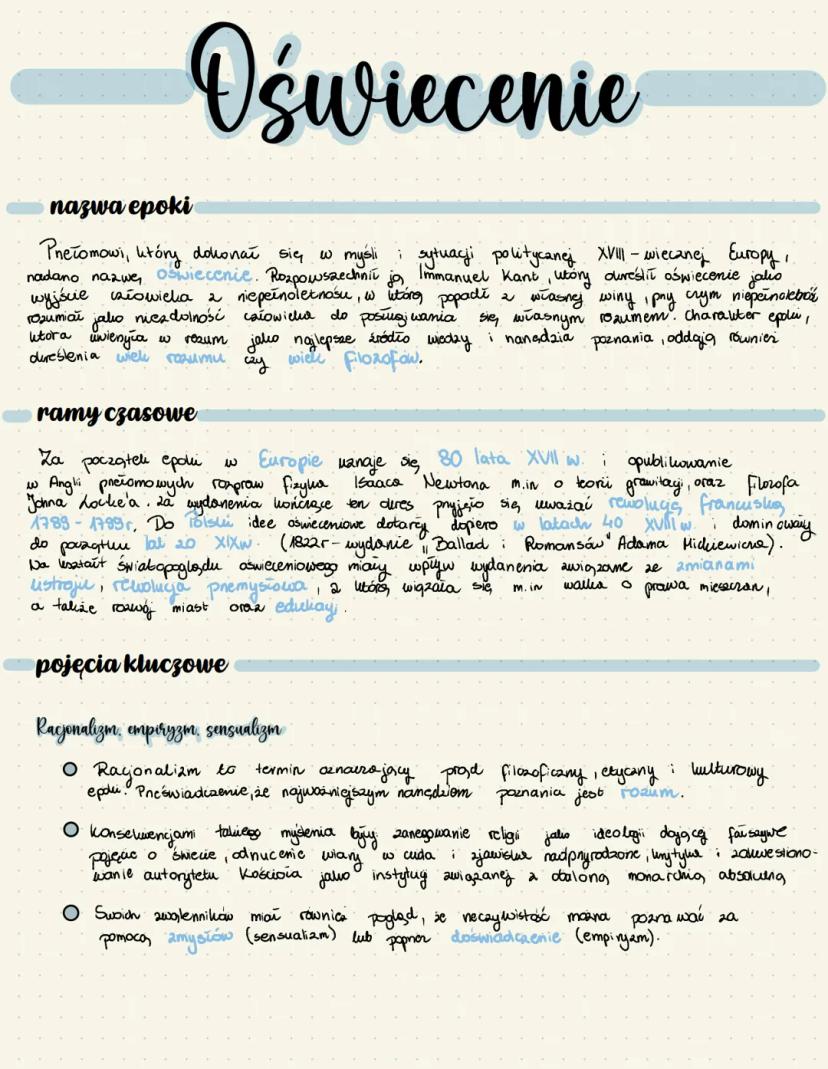 Oświecenie
nazwa epoki
Przełomowi, który dokonał się w myśli i sytuacji politycznej XVIII - wiecznej Europy,
nadano nazwę oświecenie. Rozpowszechnił ją Immanuel Kant, który określił oświecenie jako
wyjście człowieka z niepełnoletności, w którą popadł z własnej winy, przy czym niepełnoletność
rozumiał jako niezdolność człowieka do posługiwania się własnym rozumem. Charakter epoki,
która uwierzyła w rozum jako najlepsze źródło wiedzy i narzędzia poznania, oddają również
określenia wiek rozumu czy wiek filozofów.
ramy czasowe
Za początek epoki w Europie uznaje się 80 lata XVII w. i opublikowanie
w Anglii przełomowych rozpraw fizyka Isaaca Newtona m.in o teorii grawitacji, oraz filozofa
Johna Locke'a. Za wydarzenia kończące ten okres przyjęło się uważać rewolucję francuską
1789 - 1799r. Do Polski idee oświeceniowe dotarły dopiero w latach 40 XVIII w. i dominowały
do początku lat 20 XIXw. (1822r - wydanie "Ballad i Romansów" Adama Mickiewicza).
Na kształt światopoglądu oświeceniowego miały wpływ wydarzenia związane ze zmianami
ustroju, rewolucja przemysłowa, z którą wiązała się m.in walka o prawa mieszczan,
a także rozwój miast oraz edukacji.
pojęcia kluczowe
Racjonalizm, empiryzm, sensualizm
Racjonalizm to termin oznaczający prąd filozoficzny, etyczny i kulturowy
epoki. Przeświadczenie, że najważniejszym narzędziem poznania jest rozum.
Konsekwencjami takiego myślenia były: zanegowanie religii jako ideologii dającej fałszywe
pojęcie o świecie, odrzucenie wiary w cuda i zjawiska nadprzyrodzone, krytyka i zakwestiono-
wanie autorytetu Kościoła jako instytucji związanej z obaloną monarchią absolutną
Swoich zwolenników miał również pogląd, że rzeczywistość można poznawać za
pomocą zmysłów (sensualizm) lub poprzez doświadczenie (empiryzm).